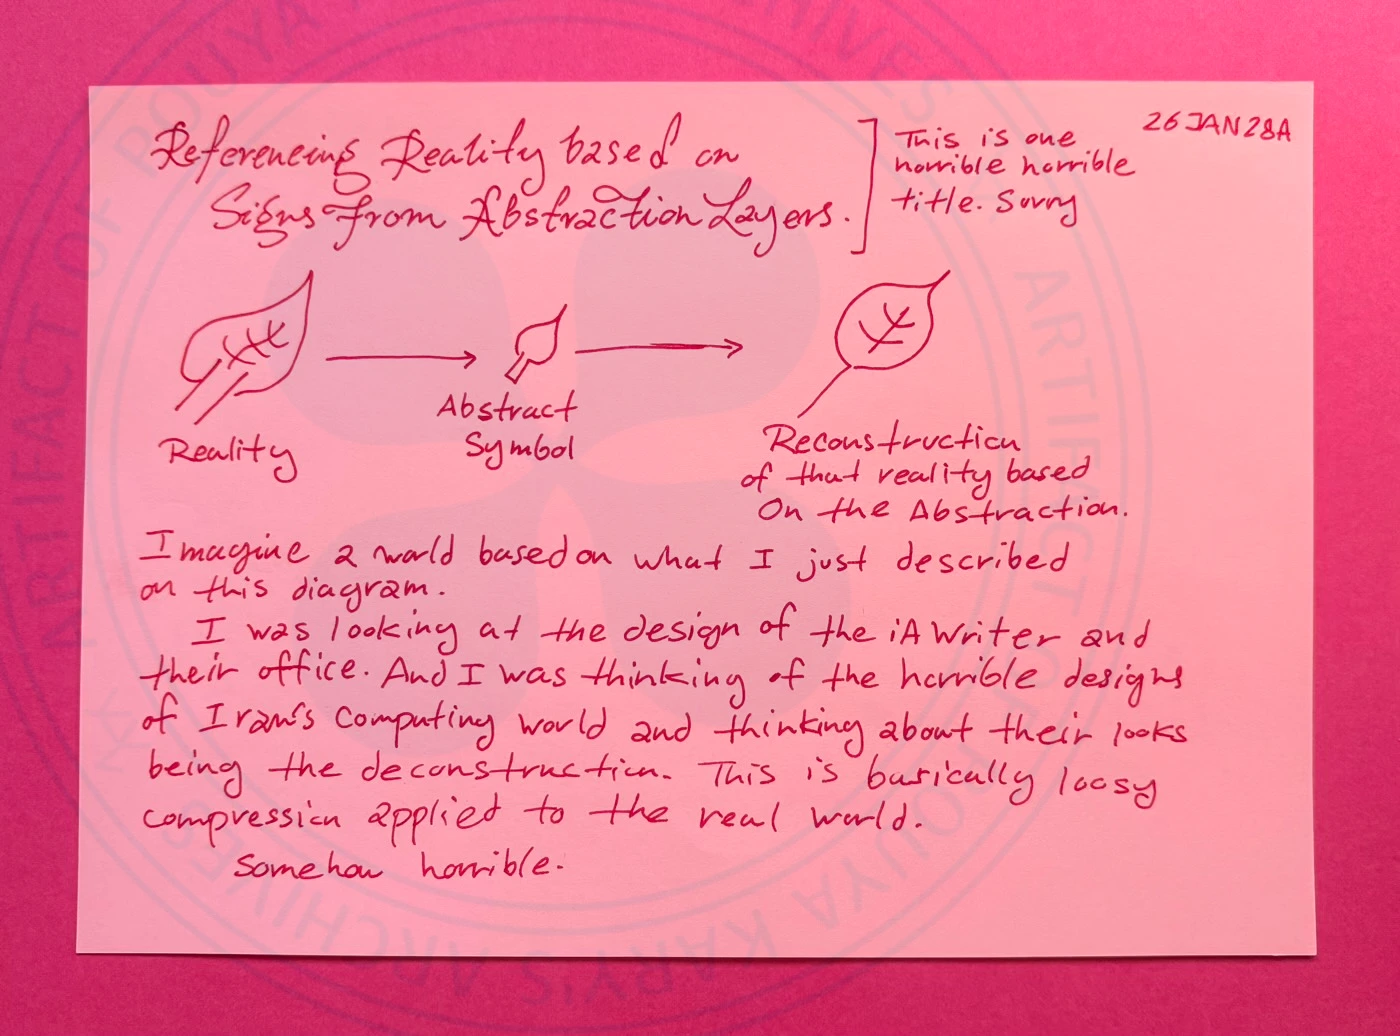 26JAN28A
Referencing Reality based on
Signs From Abstraction Layers.
This is one
horrible horrible
title. Sorry
Reality
Abstract
Symbol
Reconstruction
of that reality based
On the Abstraction.
Imagine a world based on what I just described
on this diagram.
I was looking at the design of the iA Writer and
their office. And I was thinking of the horrible designs
of Iran's Computing world and thinking about their looks
being the deconstruction. This is basically loosy
compression applied to the real world.
Somehow horrible.
ARTIFACT OF POUYA KARY'S ARCHIVES